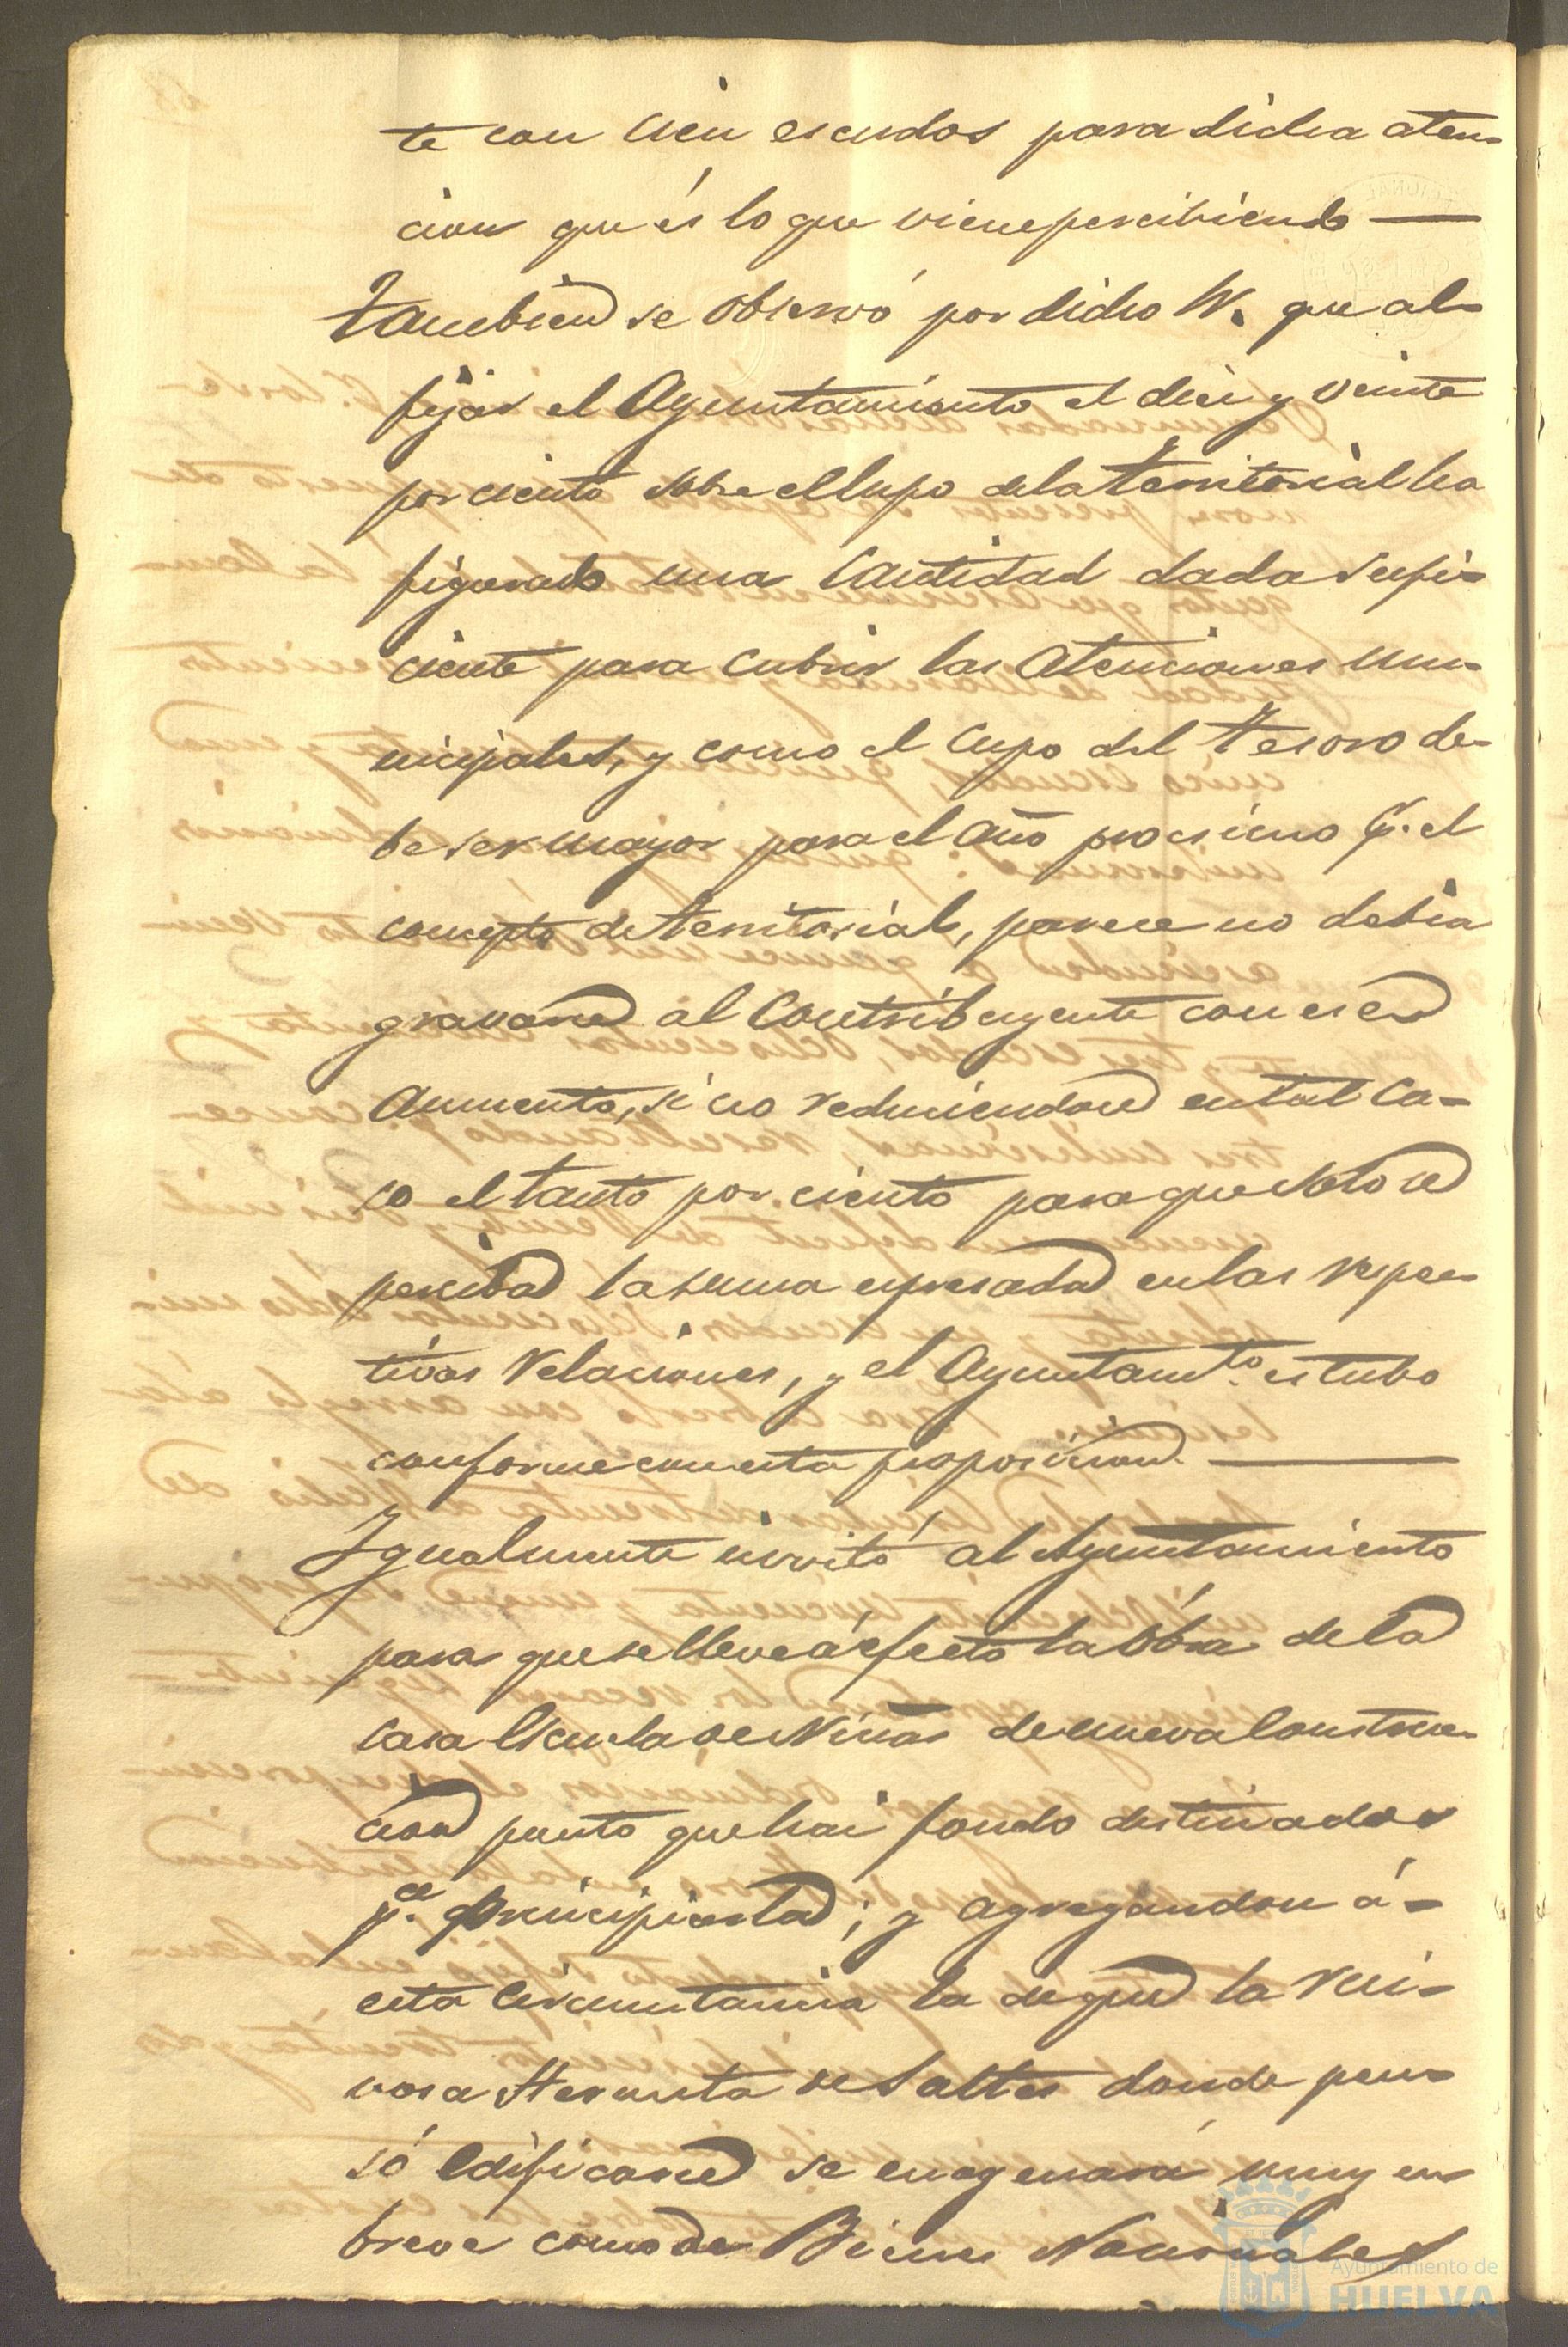 te con cien escudos para dicha aten-
cion que és lo que viene percibiendo —
Tambien se observó por dicho W. que al
fijar el Ayuntamiento el diez y veinte
por ciento sobre el cupo dela territorial ha
figurado una Cantidad dada sufi-
ciente para cubrir las Atenciones mu-
nicipales, y como el Cupo del Tesoro de-
be ser mayor para el Año procsimo pr. el
concepto de territorial, parece no debia
gravarse al Contribuyente con ese
Aumento, si no reduciendose en tal ca-
so el tanto por ciento para que solo se
perciba la suma espresada en las respec-
tivas relaciones, y el Ayuntamto. estubo
conforme con esta proposicion. —
Igualmente invitó al Ayuntamiento
para que se lleve á efecto la Obra de la
casa Escuela de Niñas de nueva Construc-
cion puesto que hai fondo destinados
pa. principiarla; y agregandose á-
esta Circunstancia la de que la rui-
nosa Hermita de Saltes donde pen-
só edificarse se enagenará muy en
breve como de Bienes Nacionales
Ayuntamiento de
HUELVA